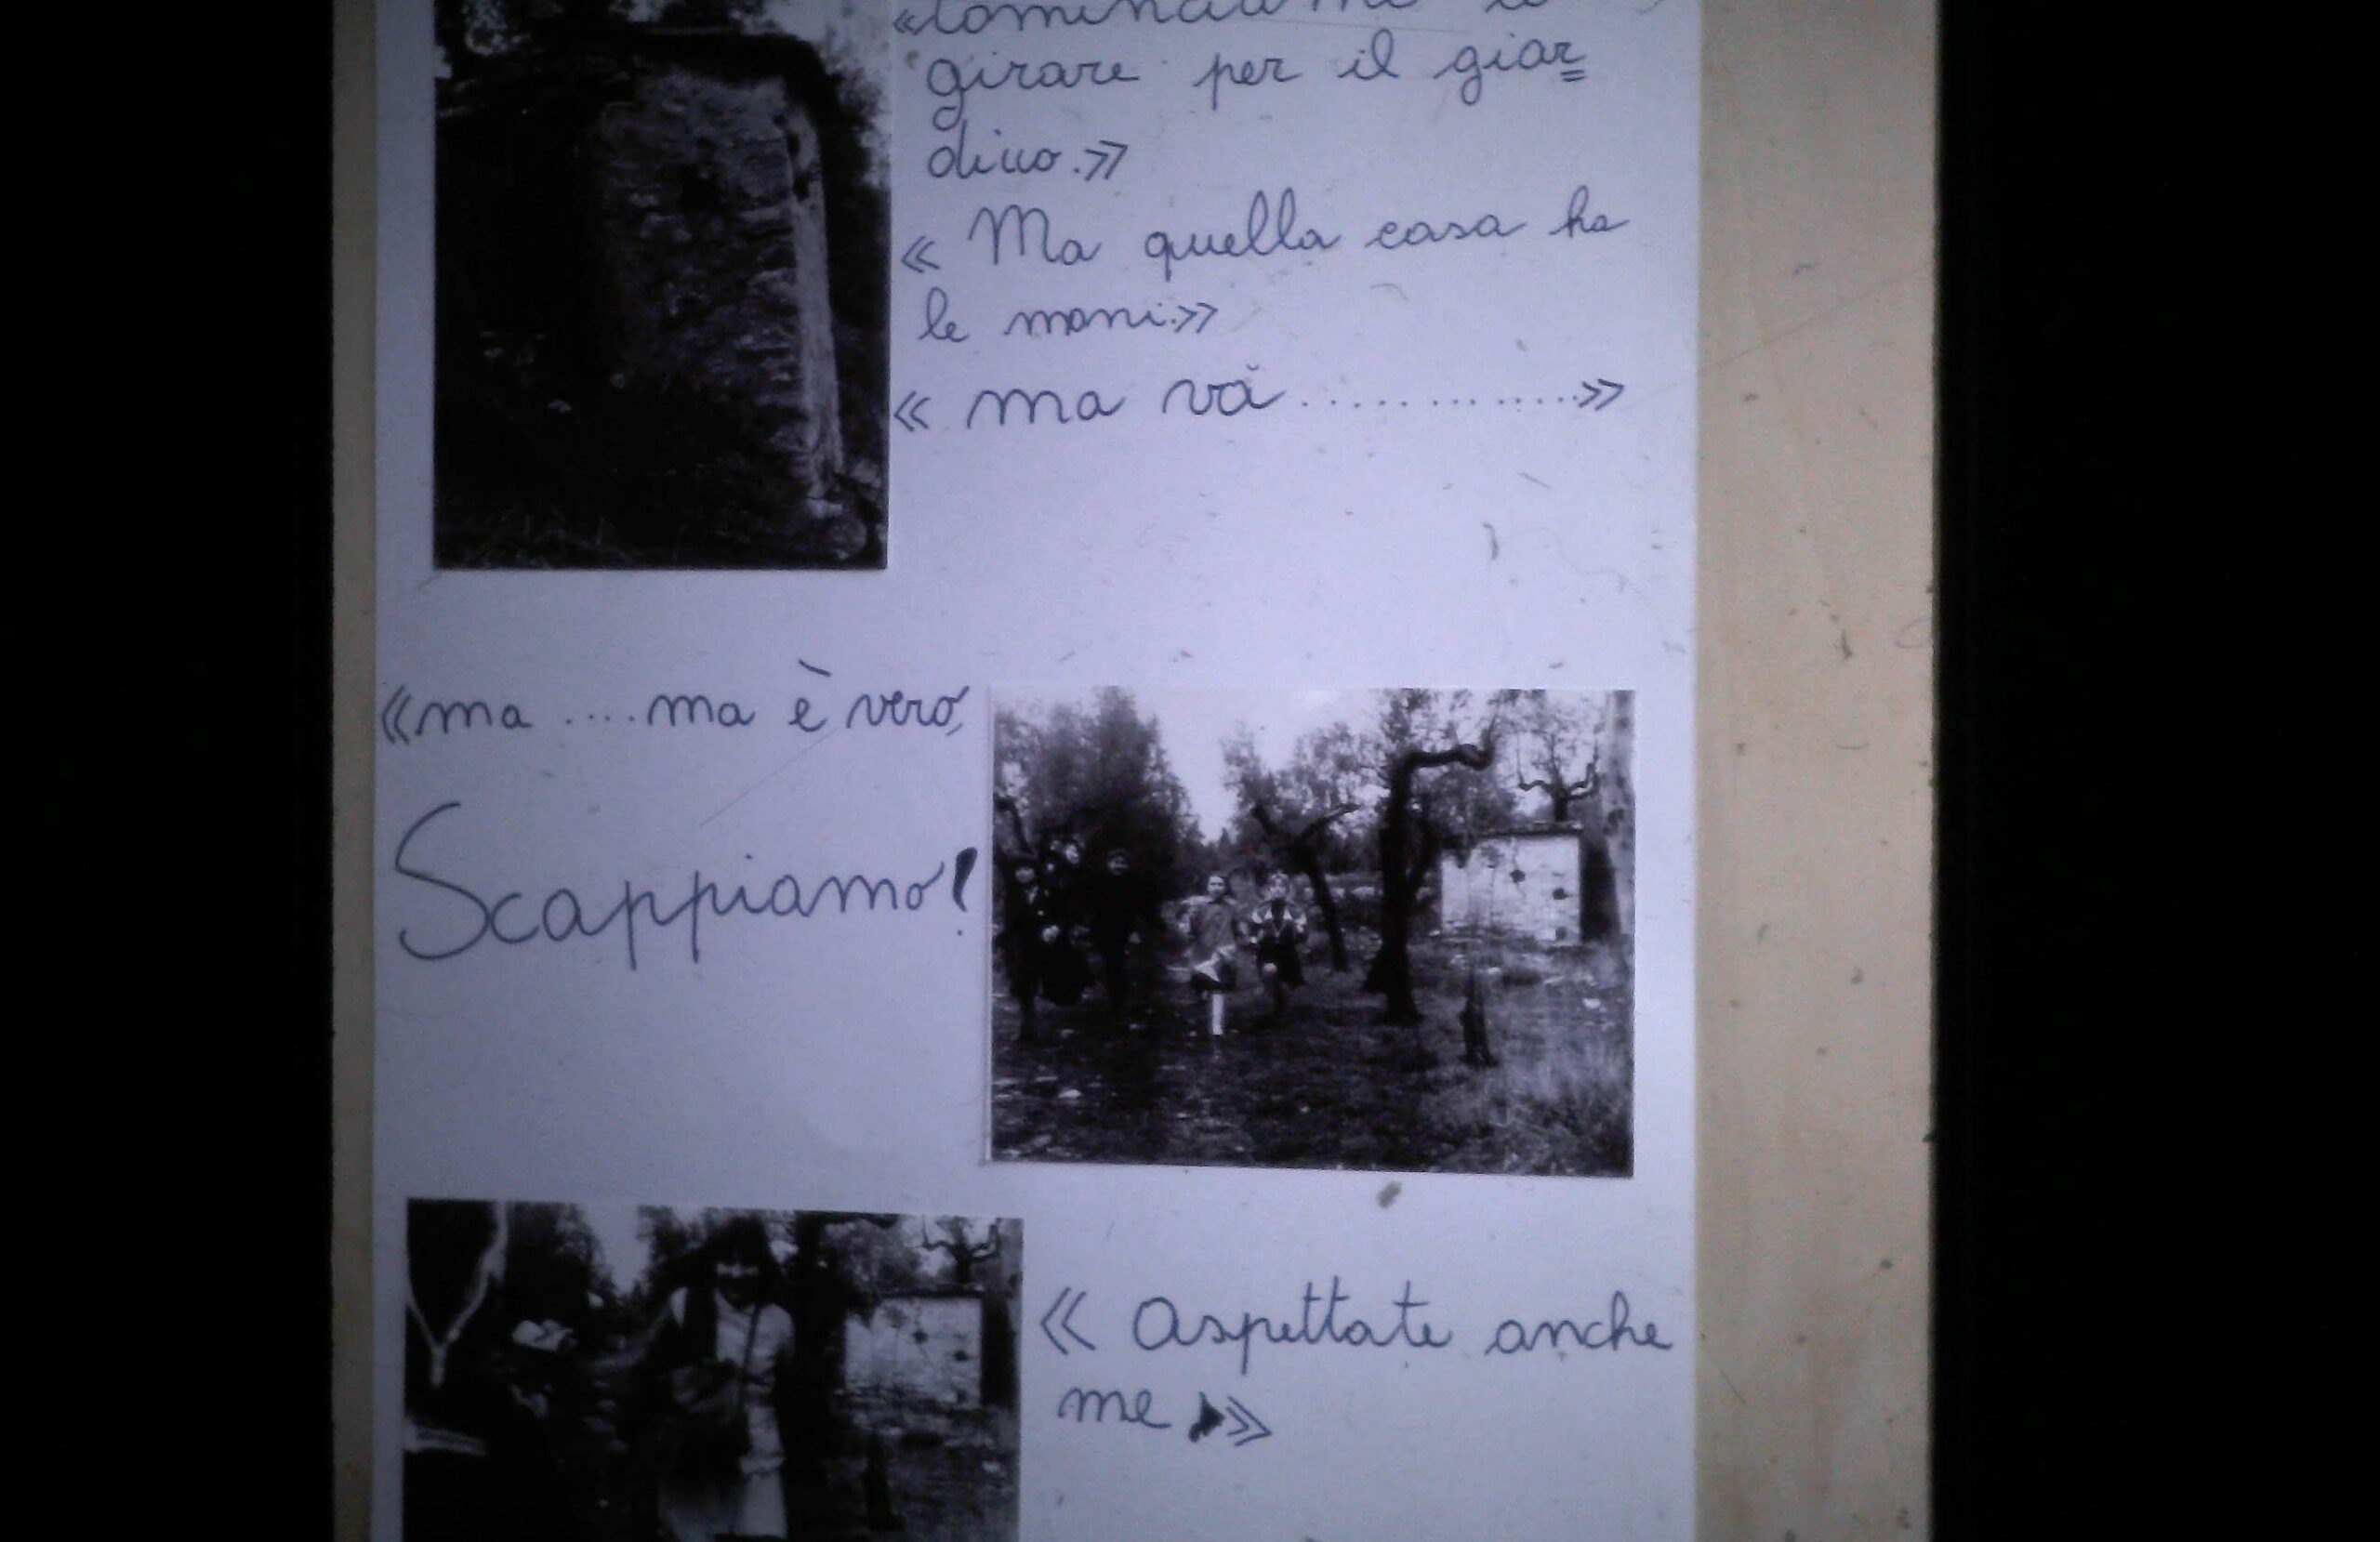 «Cominciamo a
girare per il giar=
dino.»
« Ma quella casa ha
le mani.»
« ma và ..............»
«ma ....ma è vero,
Scappiamo!
« Aspettate anche
me »